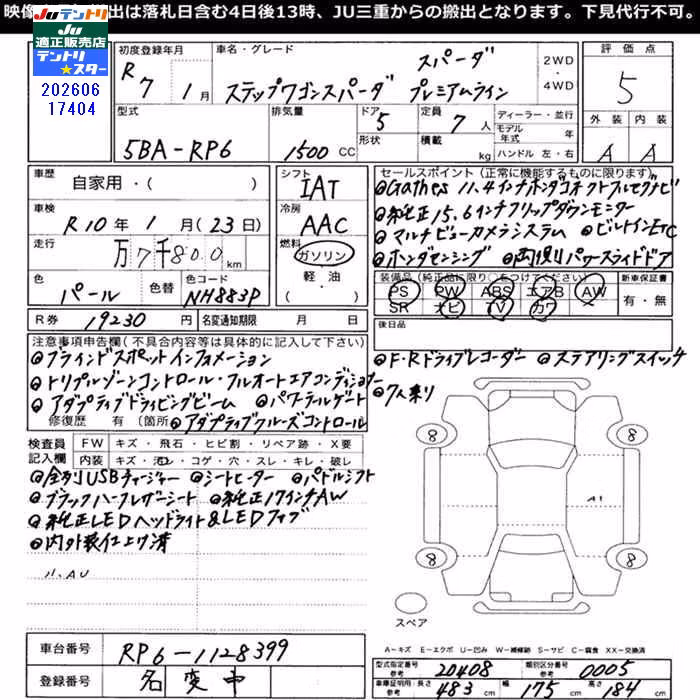 映像 出は落札日含む4日後13時、JU三重からの搬出となります。下見代行不可。
JUテントリ
JU
適正販売店
テントリ★スター
202606
17404
初度登録年月 車名・グレード 評価点
R7年 1月 ステップワゴンスパーダ スパーダ プレミアムライン 2WD・4WD 5
型式 排気量 ドア 形状 定員 積載 ディーラー・並行 外装 内装
5BA-RP6 1500cc 5 7人 kg モデル年式 年 ハンドル 左・右 A A
車歴 自家用・( ) シフト IAT
車検 R10年1月(23日) 冷房 AAC
走行 万7千800km 燃料 ガソリン 軽・油 ( )
色 パール 色替 色コード NH883P
R券 19230円 名変通知期限 月 日
セールスポイント(正常に機能するものに限ります)
●Gathers 11.4インチホンダコネクトフルセグナビ
●純正15.6インチフリップダウンモニター
●マルチビューカメラシステム ●ビルトインETC
●ホンダセンシング ●両側パワースライドドア
装備品(純正品に限り○をつけてください) 新車保証書
PS PW ABS エアB AW 有・無
SR ナビ TV カワ
後日品
注意事項申告欄(不具合内容等は具体的に記入して下さい)
●ブラインドスポットインフォメーション
●トリプルゾーンコントロール・フルオートエアコンディショナー
●アダプティブドライビングビーム ●パワーテールゲート
修復歴 有 〔箇所 ●アダプティブクルーズコントロール
●F・Rドライブレコーダー ●ステアリングスイッチ
●7人乗り
検査員記入欄 FW キズ・飛石・ヒビ割・リペア跡・X要
内装 キズ・汚レ・コゲ・穴・スレ・キレ・破レ
●全列USBチャージャー ●シートヒーター ●パドルシフト
●ブラックハーフレザーシート ●純正17インチAW
●純正LEDヘッドライト&LEDフォグ
●内外装仕上げ済
ハ.AU
8 8
A1
8 8
スペア
A-キズ E-エクボ U-凹み W-補修跡 S-サビ C-腐食 XX-交換済
車台番号 RP6-1128399
登録番号 名変中
型式指定番号 参考 20408 類別区分番号 参考 0005
車庫証明用・長さ 参考 483cm 幅 175cm 高さ 184cm